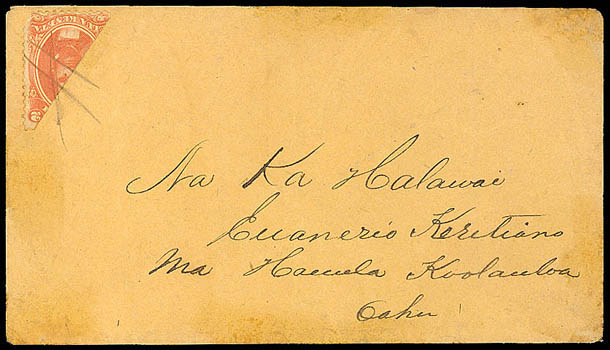 Na Ka Halawai
Euanerio Keritiano
Ma Hauula Koolauloa
Oahu